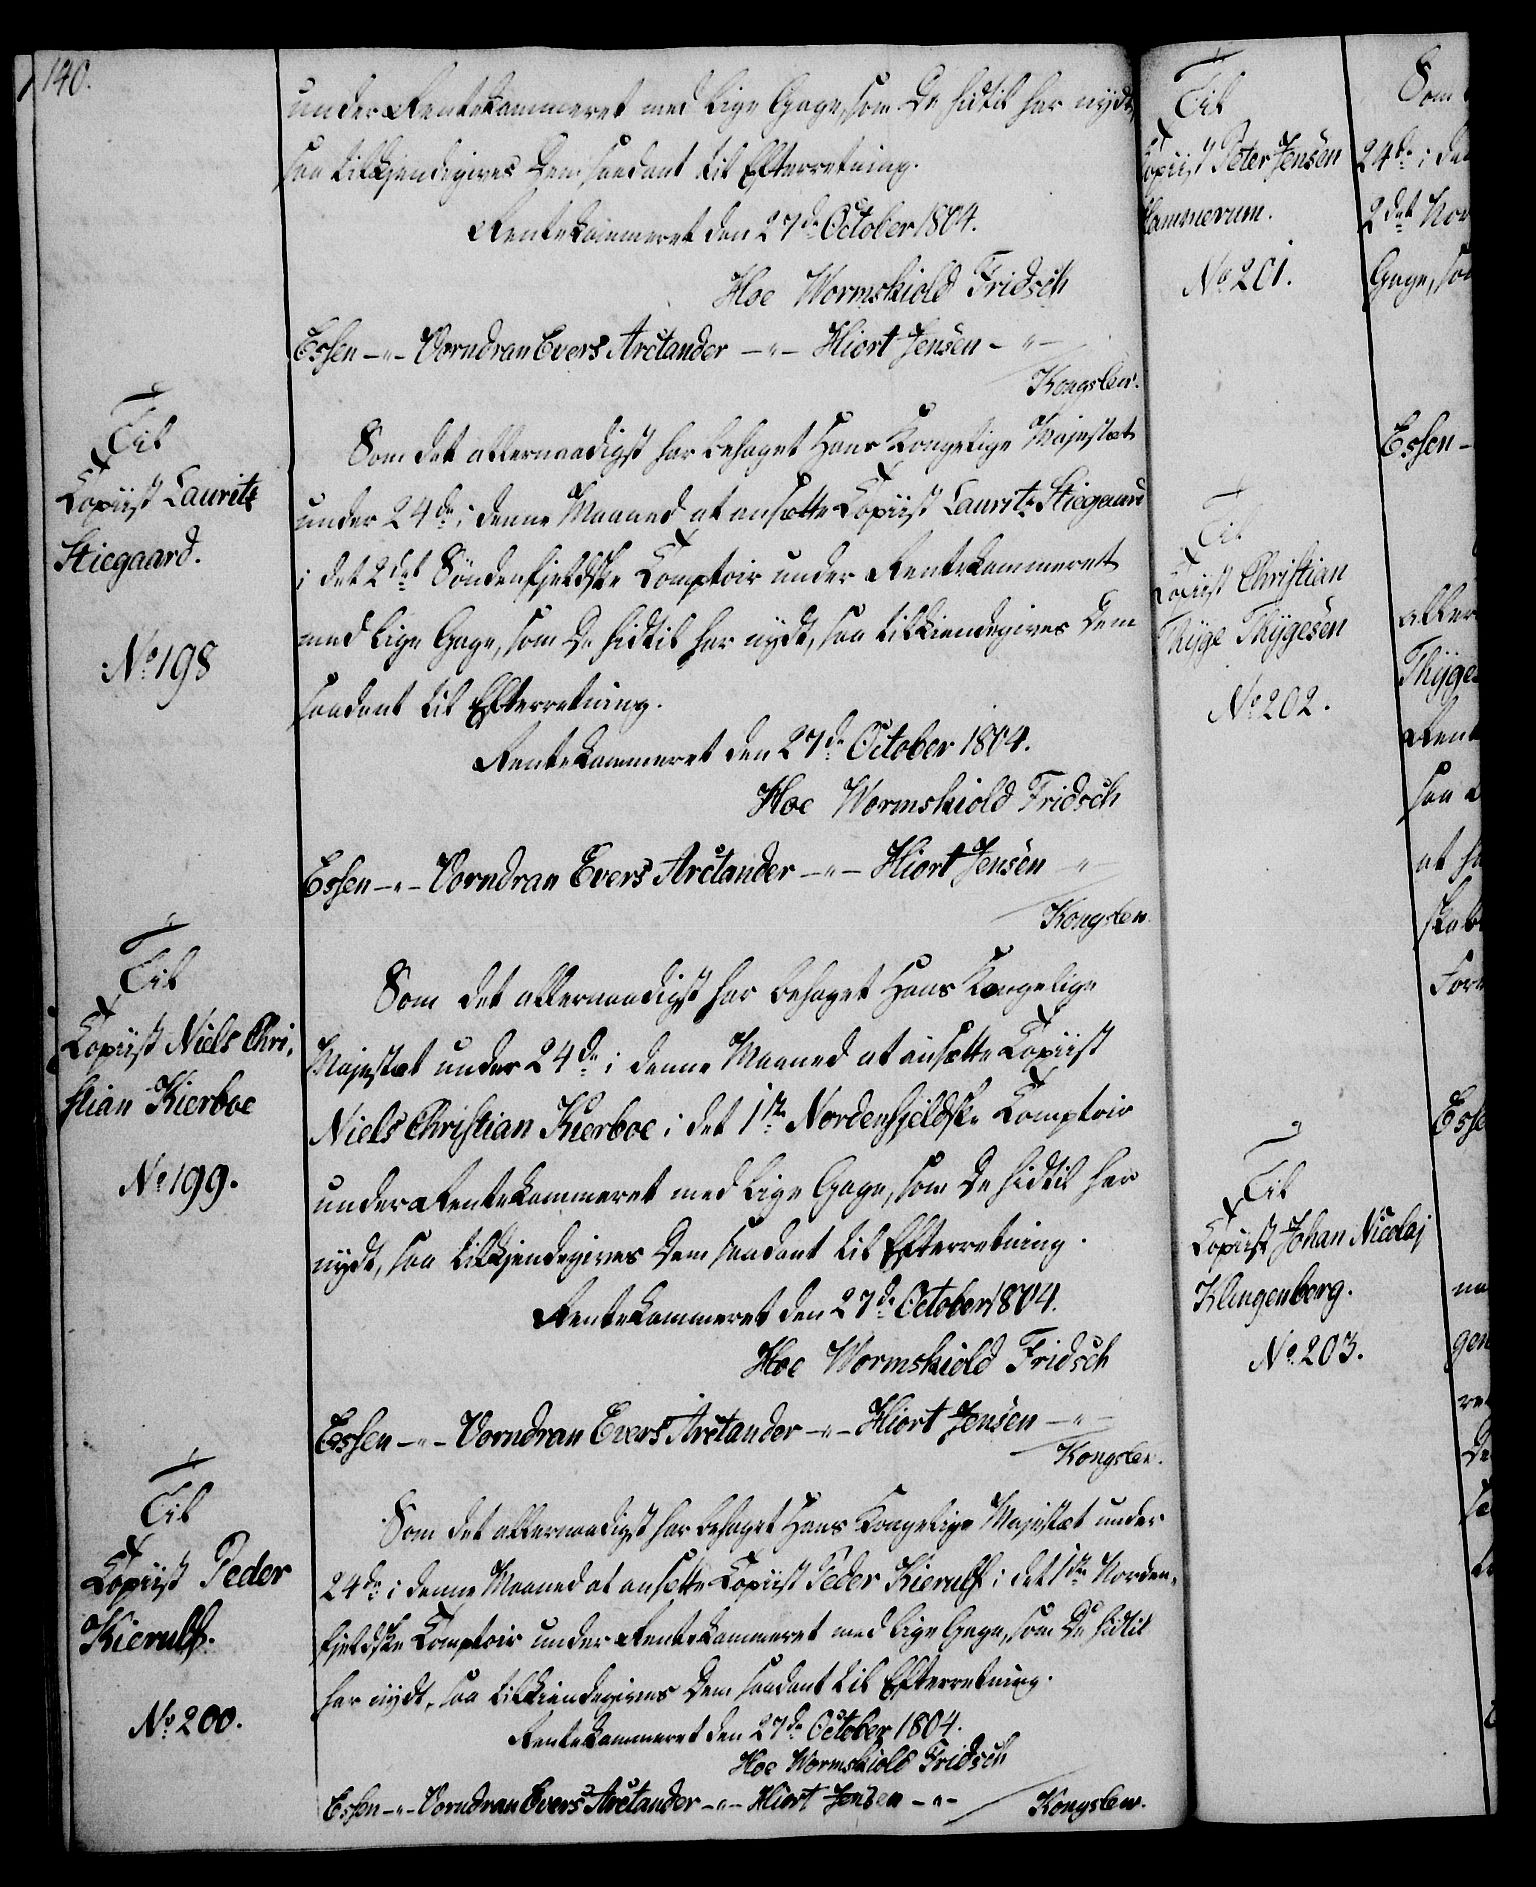 140.
under Rentekammeret med lige Gage, som De hidtil har nydt,
saa tilkjendegives Dem saadant til Efterretning.
Rentekammeret den 27de October 1804.
Hoe Wormskiold Fridsch
Essen -"- Vorndran Evers Arctander -"- Hiort Jensen -"-
Kongslew.
Til
Copiist Lauritz
Stiegaard.
No 198
Som det allernaadigst har behaget Hans Kongelige Majestæt
under 24de i denne Maaned at ansætte Copiist Lauritz Stiegaard
i det 2det Søndenfjeldske Comptoir under Rentekammeret
med lige Gage, som De hidtil har nydt, saa tilkiendegives Dem
saadant til Efterretning.
Rentekammeret den 27de October 1804.
Hoe Wormskiold Fridsch
Essen -"- Vorndran Evers Arctander -"- Hiort Jensen "
Kongslew.
Til
Copiist Niels Chri-
stian Kierboe
No 199.
Som det allernaadigst har behaget Hans Kongelige
Majestæt under 24de i denne Maaned at ansætte Copiist
Niels Christian Kierboe i det 1ste Nordenfjeldske Comptoir
under Rentekammeret med lige Gage, som De hidtil har
nydt, saa tilkjendegives Dem saadant til Efterretning.
Rentekammeret den 27de October 1804.
Hoe Wormskiold Fridsch
Essen -"- Vorndran Evers Arctander -"- Hiort Jensen -"-
Kongslew.
Til
Copiist Peder
Kierulf.
No 200.
Som det allernaadigst har behaget Hans Kongelige Majestæt under
24de i denne Maaned at ansætte Copiist Peder Kierulf i det 1ste Norden-
fjeldske Comptoir under Rentekammeret med lige Gage, som De hidtil
har nydt, saa tilkiendegives Dem saadant til Efterretning.
Rentekammeret den 27de October 1804.
Hoe Wormskiold Fridsch
Essen -"- Vorndran Evers Arctander -"- Hiort Jensen -"- Kongslew.
Til
Copiist Peter Jensen
Hammerum.
No 201.
Til
Copiist Christian
Thyge Thygesen
No 202.
Til
Copiist Johan Nicolaj
Klingenberg.
No 203.
Som
24de i de
2det Nor
Gage, so
Essen -
aller
Thyge
Rent
saa
at
Esse